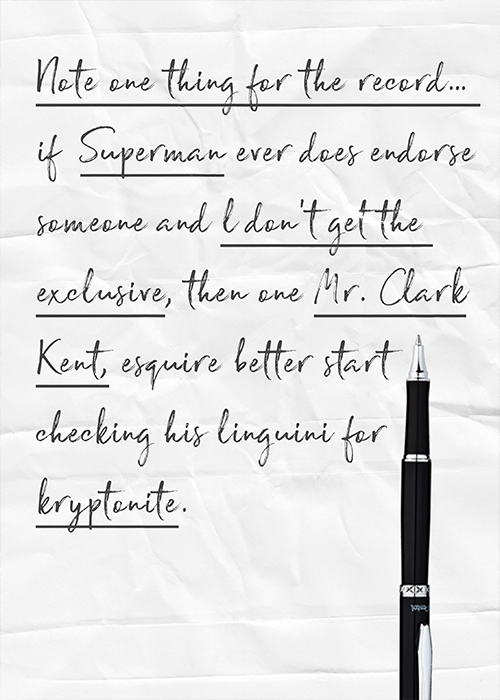 Note one thing for the record...
if Superman ever does endorse
someone and I don't get the
exclusive, then one Mr. Clark
Kent, esquire better start
checking his linguini for
kryptonite.